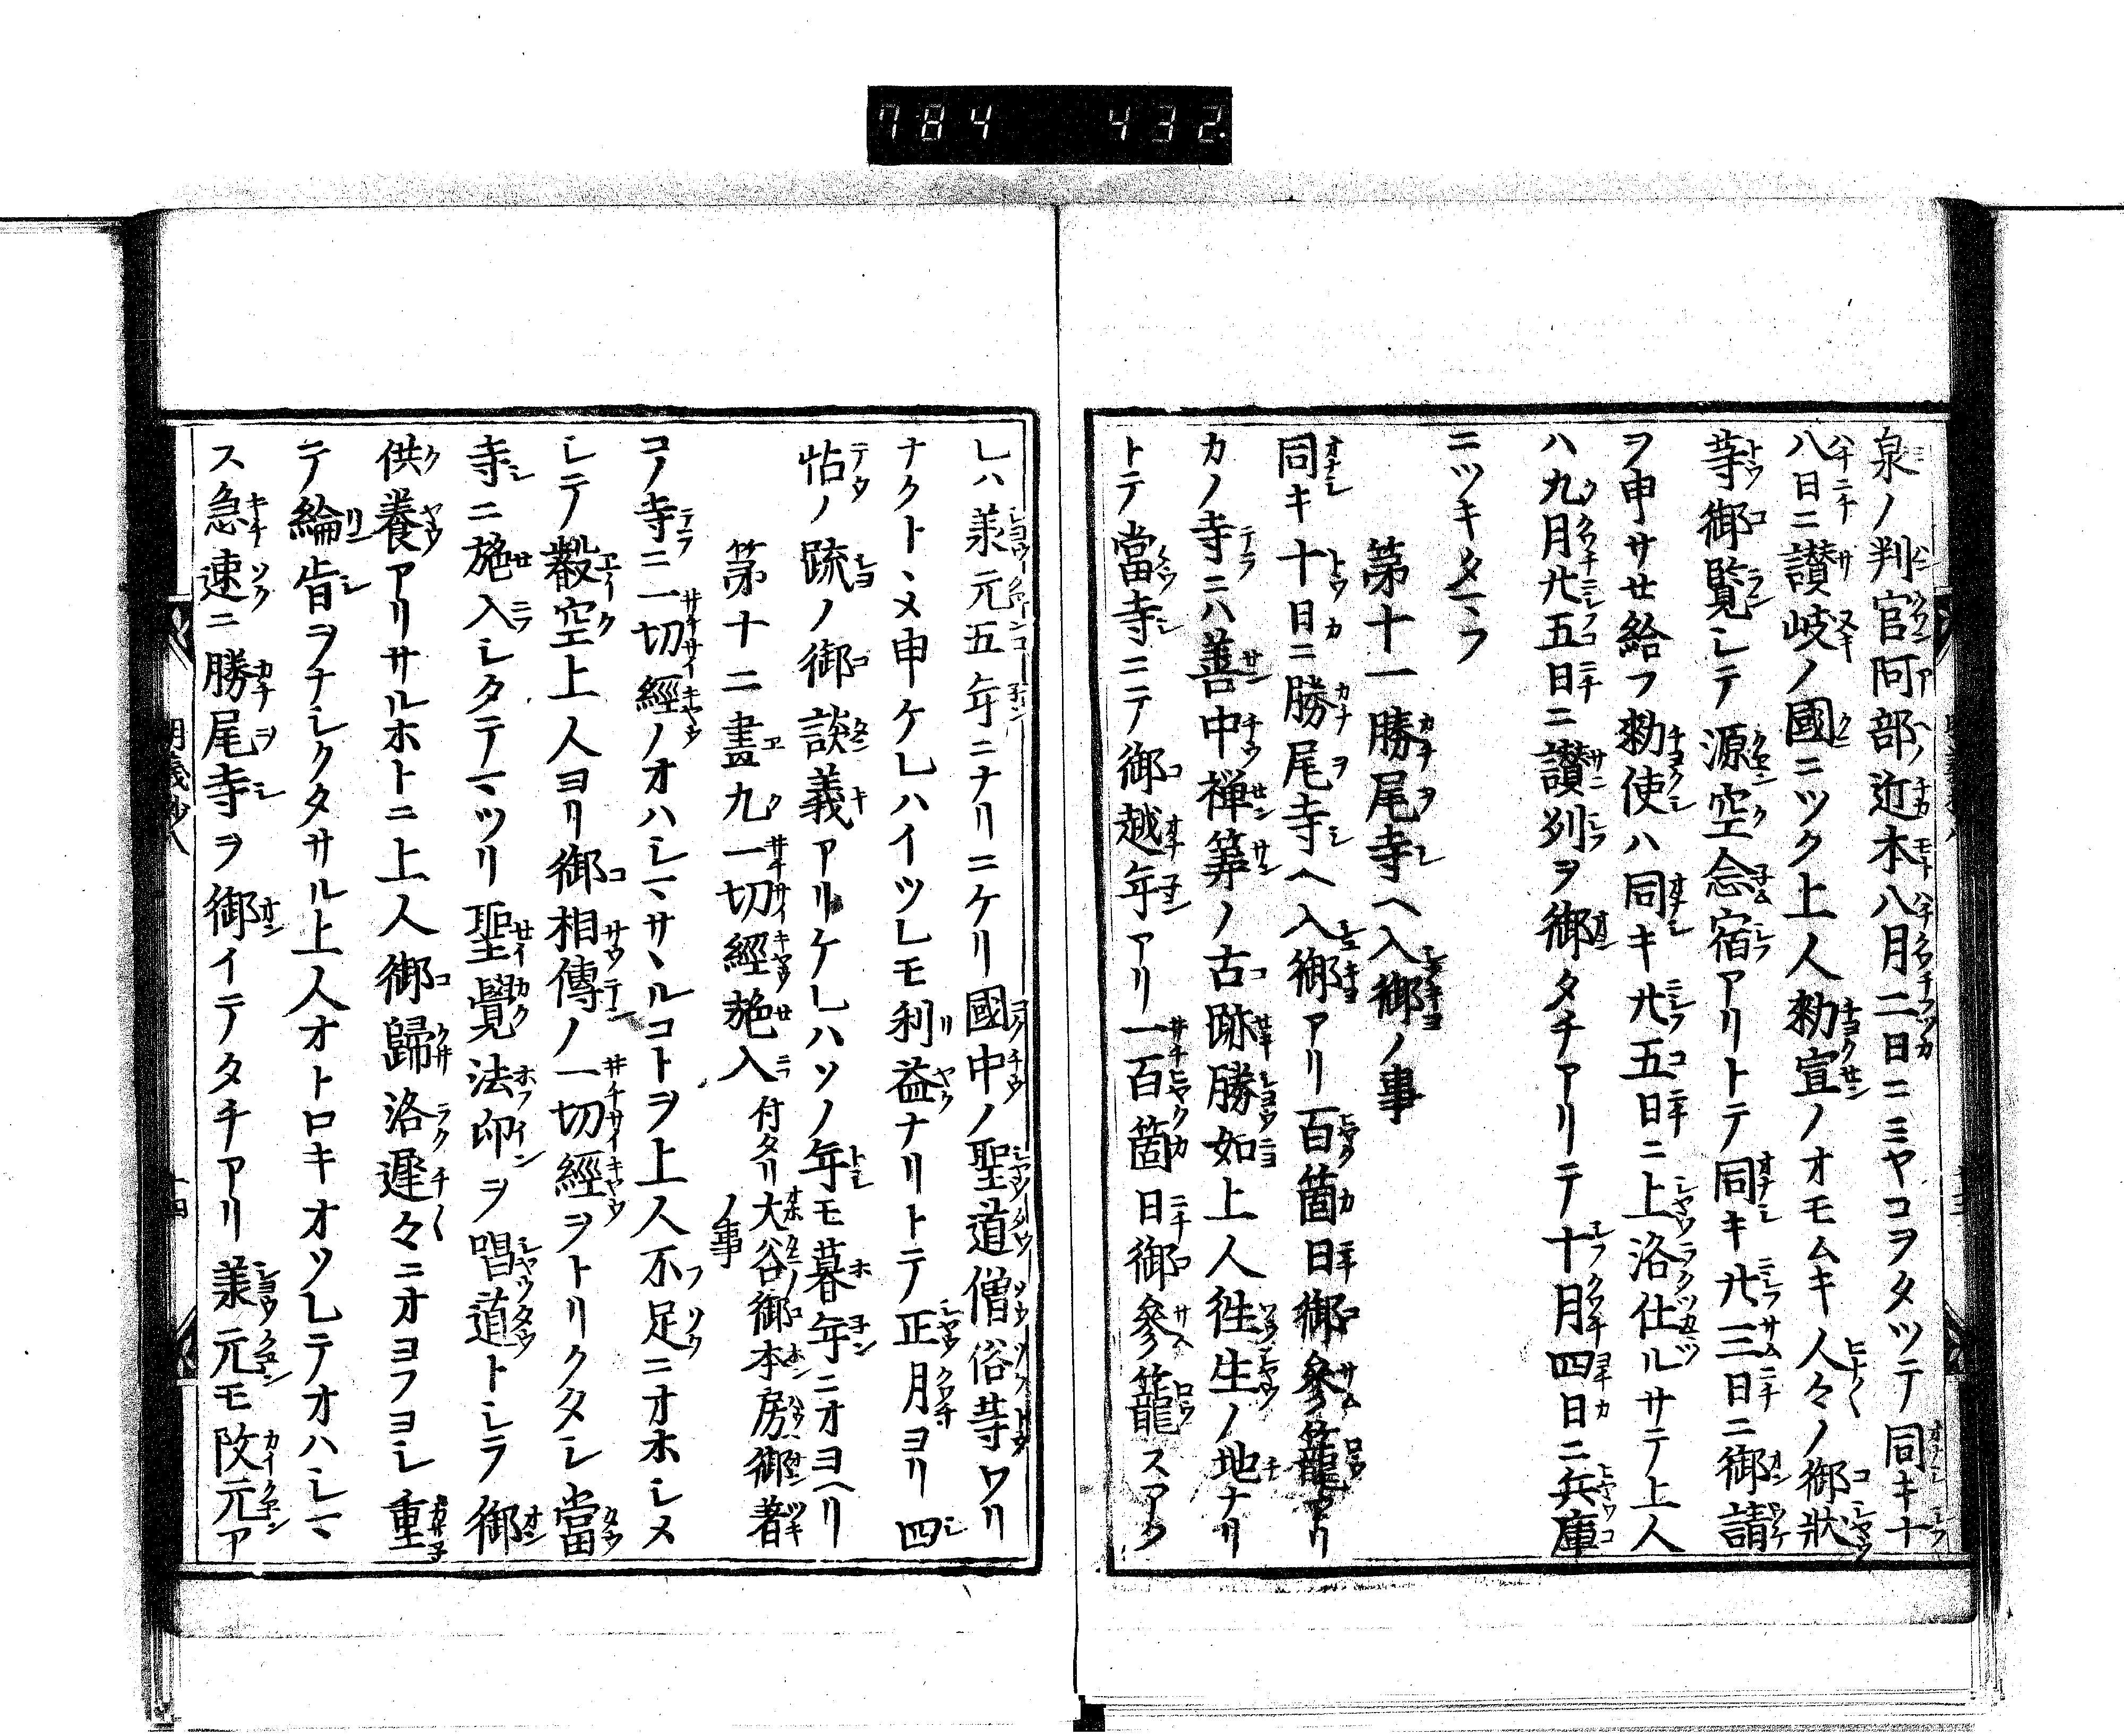 784 432
泉ノ判官阿部近本八月二日ニミヤコヲタツテ同キ十
八日ニ讃岐ノ國ニツク上人勅宣ノオモムキ人々ノ御狀
等御覧シテ源空念宿アリトテ同キ廿三日ニ御請
ヲ申サセ給フ勅使ハ同キ廿五日ニ上洛仕ルサテ上人
ハ九月廿五日ニ讃州ヲ御タチアリテ十月四日ニ兵庫
ニツキタマフ
第十一勝尾寺ヘ入御ノ事
同キ十日ニ勝尾寺ヘ入御アリ一百箇日御參籠アリ
カノ寺ニハ善中禅筭ノ古跡勝如上人徃生ノ地ナリ
トテ當寺ニテ御越年アリ一百箇日御參籠スアク
レハ羕元五年ニナリニケリ國中ノ聖道僧俗等ワリ
ナクトヽメ申ケレハイツレモ利益ナリトテ正月ヨリ四
帖ノ疏ノ御談義アリケレハソノ年モ暮年ニオヨヘリ
第十二畫九一切經施入付タリ大谷御本房御著
ノ事
コノ寺ニ一切經ノオハシマサヽルコトヲ上人不足ニオホシメ
シテ叡空上人ヨリ御相傳ノ一切經ヲトリクタシ當
寺ニ施入シタテマツリ聖覺法印ヲ唱道トシテ御
供養アリサルホトニ上人御歸洛遲々ニオヨフヨシ重
テ綸㫖ヲナシクタサル上人オトロキオソレテオハシマ
ス急速ニ勝尾寺ヲ御イテタチアリ羕元モ改元ア
明義抄八
十四